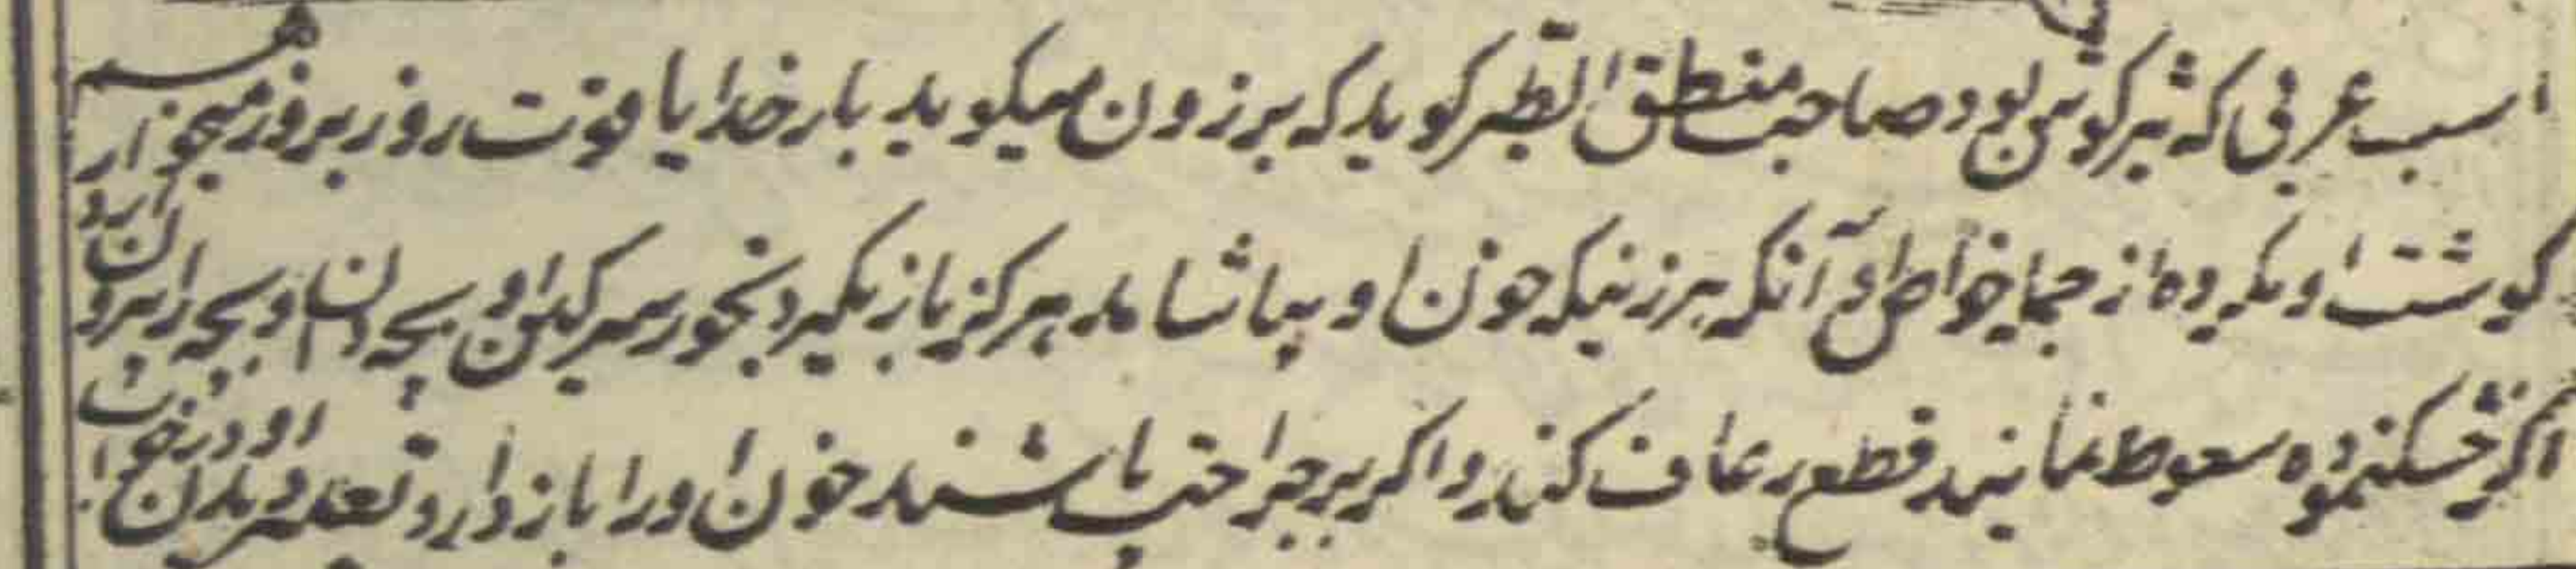 اسب عربی که ترکوش بود صاحب منطق الطیر کوید که برزون میکوید بار خدایا قوت روز بروز میخواهم از
کوشت او مکروه از جمله خواص او آنکه هر زنیکه خون او بیاشامد هرکز باز نکیرد بخور سرکین او بچه دان و بچه را بیرون آرد
اکر خشک نموده سعوط نمایند قطع رعاف کند و اکر بر جراحت پاشند خون او را باز دارد و تعلیق دندان او در